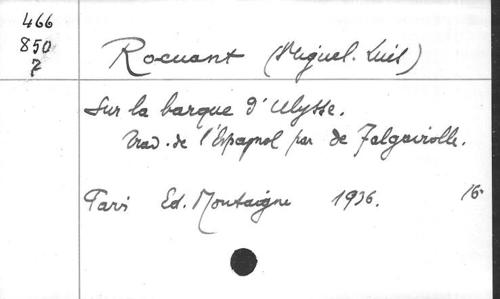 466
850
7
Rocuant (Miguel-Luis)
Sur la barque d'Ulysse.
Trad. de l'Espagnol par de Falgairolle.
Paris Ed. Montaigne 1936. 16º